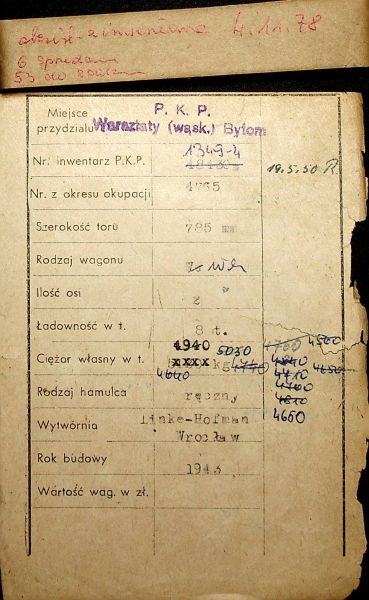 4.11.78
6
53 do
P. K. P.
Warsztaty (wąsk.) Bytom
Miejsce
przydziału
Nr. inwentarz P.K.P. 1349-4
19.5.50 R
Nr. z okresu okupacji 4765
Szerokość toru 785 mm
Rodzaj wagonu
Ilość osi 2
Ładowność w t. 8 t.
4940 5030 4760 4560
Ciężar własny w t. xxxx kg 4770 4840 4650
4640 4710
4700
Rodzaj hamulca ręczny
4810
4650
Wytwórnia Linke-Hofman
Wrocław
Rok budowy 1943
Wartość wag. w zł.